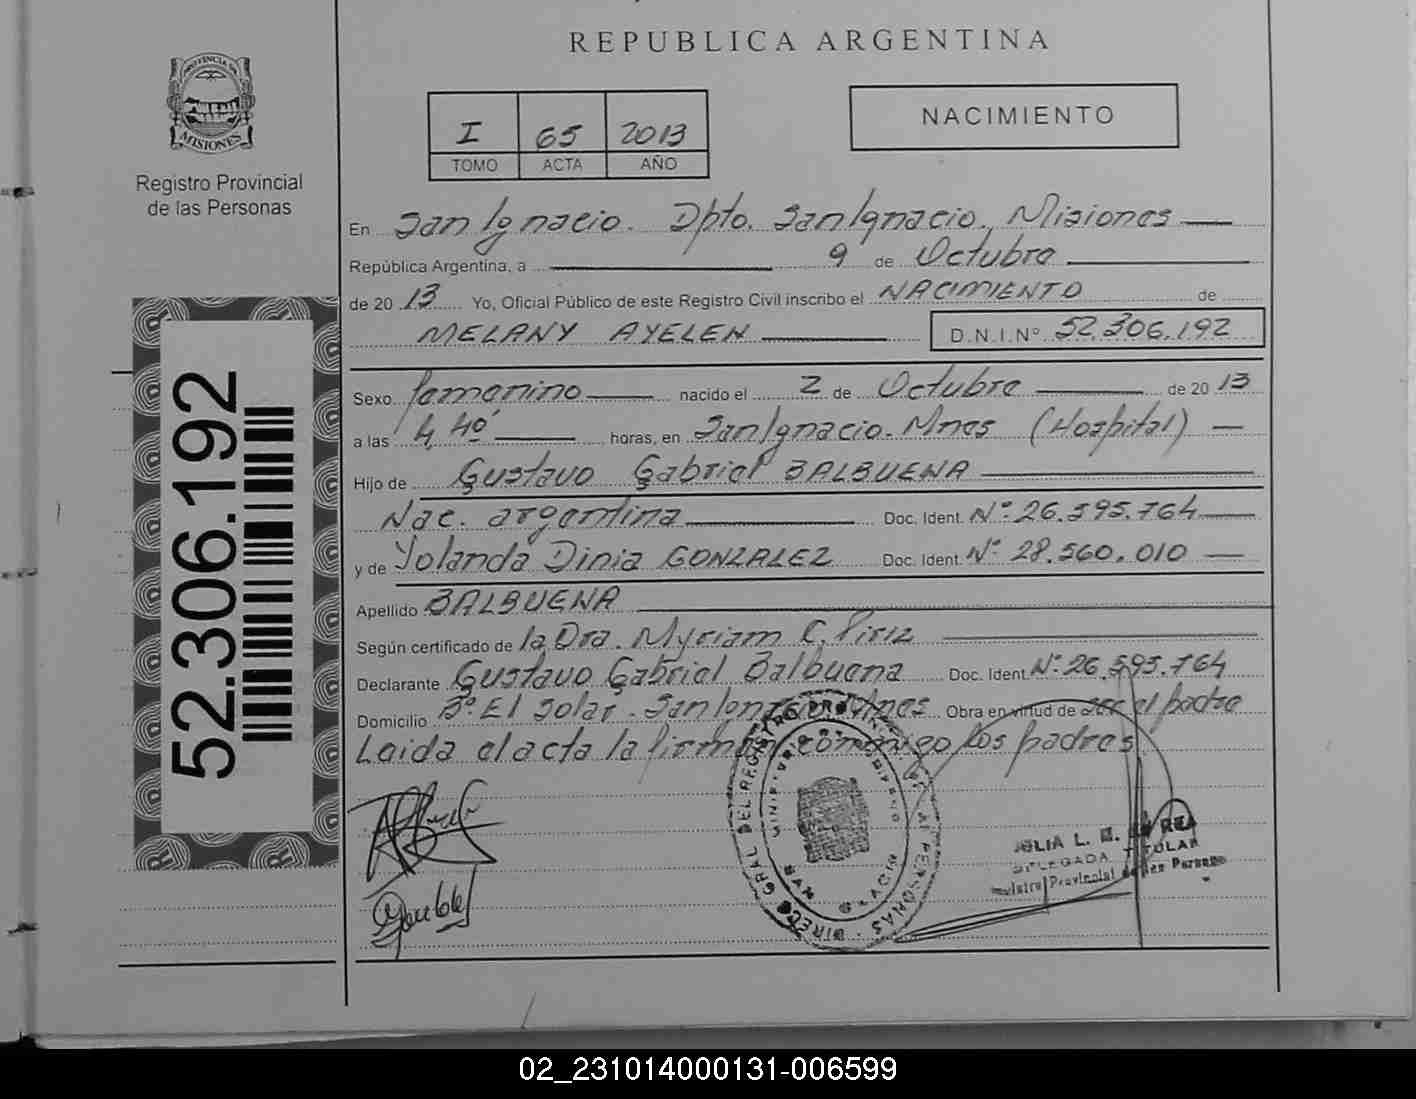 REPUBLICA ARGENTINA
PROVINCIA DE
MISIONES
Registro Provincial
de las Personas
I 65 2013
TOMO ACTA AÑO
NACIMIENTO
En San Ignacio. Dpto. San Ignacio, Misiones
República Argentina, a 9 de Octubre
de 2013 Yo, Oficial Público de este Registro Civil inscribo el NACIMIENTO de
MELANY AYELEN D.N.I.Nº 52.306.192
Sexo femenino nacido el 2 de Octubre de 2013
a las 4,40' horas, en San Ignacio. Mnes (Hospital)
Hijo de Gustavo Gabriel BALBUENA
Nac. argentina Doc. Ident. Nº 26.595.764
y de Yolanda Dinia GONZALEZ Doc. Ident. Nº 28.560.010
Apellido BALBUENA
Según certificado de la Dra. Myriam C. Piriz
Declarante Gustavo Gabriel Balbuena Doc. Ident. Nº 26.595.764
Domicilio Bº El Solar. San Ignacio Mnes Obra en virtud de ser el padre
Laida el acta la firman conmigo los padres
52.306.192
DIREC. GRAL DEL REGISTRO PROV. DE LAS PERSONAS
JULIA L.
DELEGADA TITULAR
Registro Provincial de las Personas
02_231014000131-006599